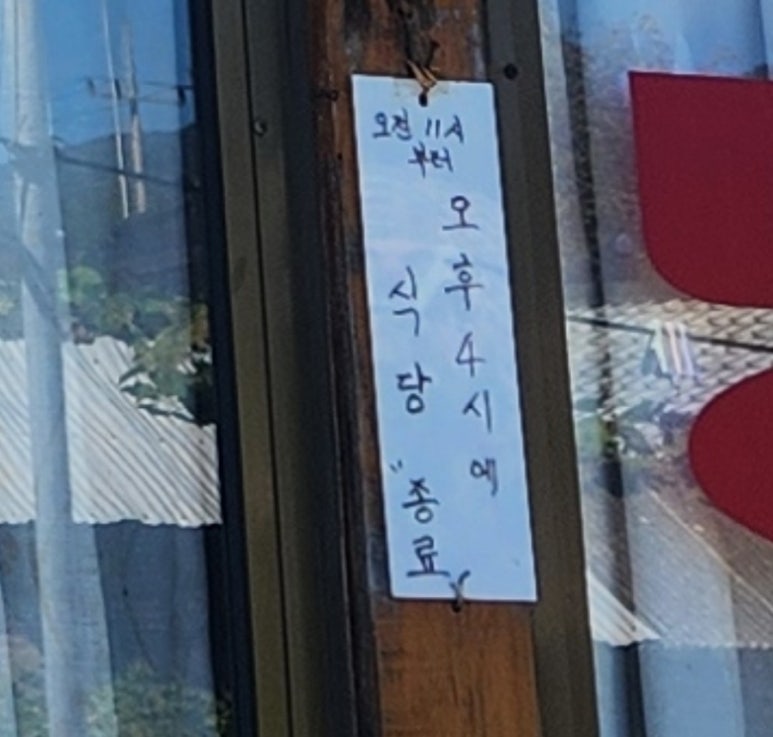 오전 11시
부터
오후4시에
식당 "종료"